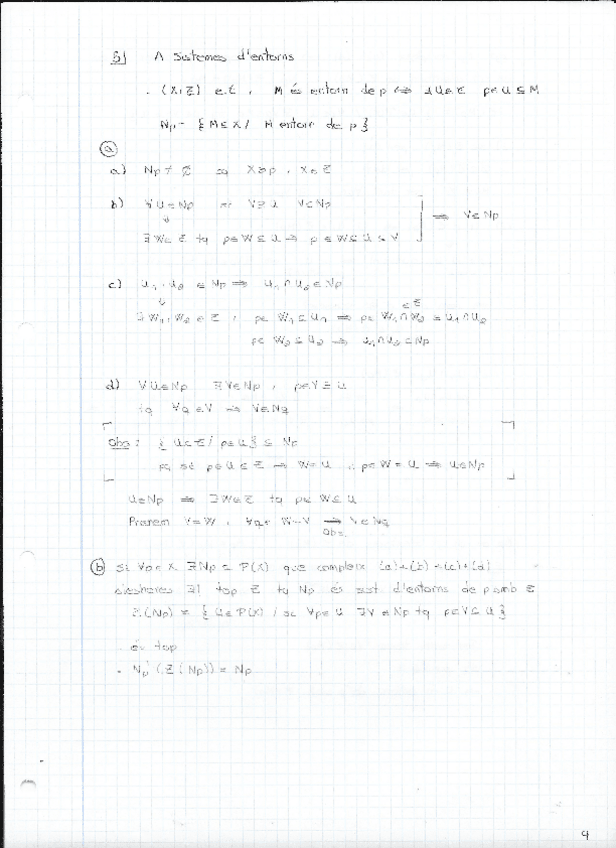 5) Λ Sistemes d'entorns
· (X, Z) e.t , M és entorn de p ⇔ ∃ U∈Z p∈U⊆M
Np = {M⊆X / M entorn de p}
ⓐ
a) Np ≠ ∅ X∋p , X∈Z
b) ∀U∈Np V⊇U V∈Np
⇒ V∈Np
∃W∈Z tq p∈W⊆U → p∈W⊆U⊆V
c) U1, U2 ∈ Np ⇒ U1∩U2∈Np
∈Z
∃W1, W2 ∈ Z , p∈W1⊆U1 ⇒ p∈W1∩W2⊆U1∩U2
p∈W2⊆U2 → U1∩U2∈Np
d) ∀U∈Np ∃V∈Np , p∈V⊆U
tq ∀q∈V → V∈Nq
Obs: {U∈Z / p∈U} ⊆ Np
pq si p∈U∈Z → W=U ∴ p∈W=U ⇒ U∈Np
U∈Np ⇒ ∃W∈Z tq p∈W⊆U
Prenem V=W , ∀q∈W=V → V∈Nq
Obs.
ⓑ Si ∀p∈X ∃Np⊆P(X) que compleix (a)+(b)+(c)+(d)
aleshores ∃! top Z tq Np és sist d'entorns de p amb Z
Z(Np) = {U∈P(X) / si ∀p∈U ∃V∈Np tq p∈V⊆U}
· és top
· Np (Z(Np)) = Np
4